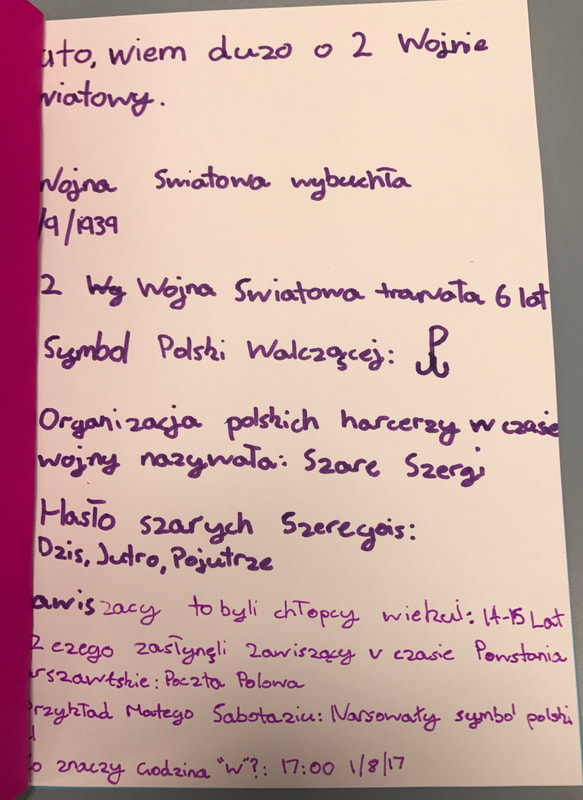 ato, wiem dużo o 2 Wojnie
wiatowy.
Wojna Swiatowa wybuchła
/9/1939
2 Wojna Swiatowa trwała 6 lat
Symbol Polski Walczącej:
Organizacja polskich harcerzy w czasie
wojny nazywała: Szare Szergi
Hasło szarych Szeregois:
Dzis, Jutro, Pojutrze
awiszacy to byli chłopcy wieku: 14-15 Lat
Z czego zasłynęli zawiszący v czasie Powstania
rszawtskie: Poczta Polowa
rzykład Małego Sabotaziu: Narsowały symbol polski
o znaczy Godzina "W"?: 17:00 1/8/17